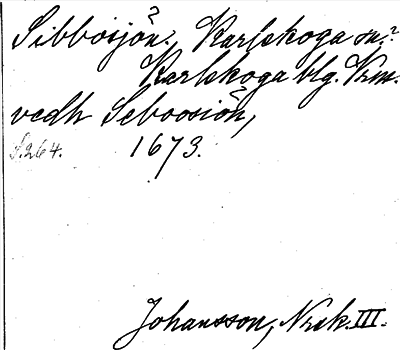 Sibbosjön? Karlskoga sn?
Karlskoga blg. Vrm.
vedh Seboosiön,
S. 264. 1673.
Johansson, Nrsk. III.